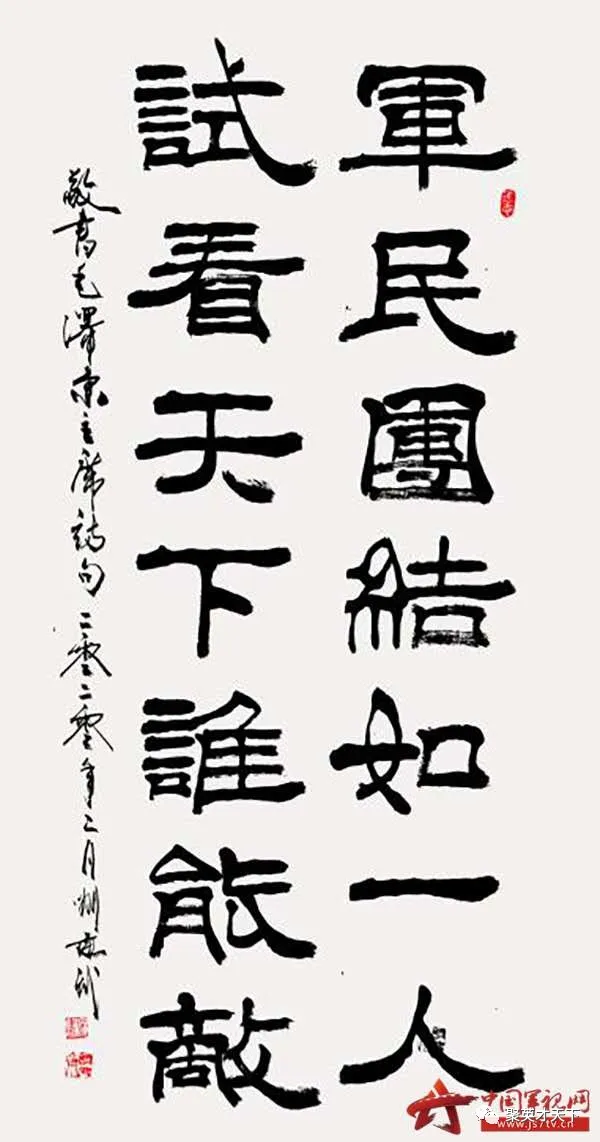 軍民團結如一人
試看天下誰能敵
敬書毛澤東主席詩句二零二零年二月
中国军视网
www.js7tv.cn
聚英才天下